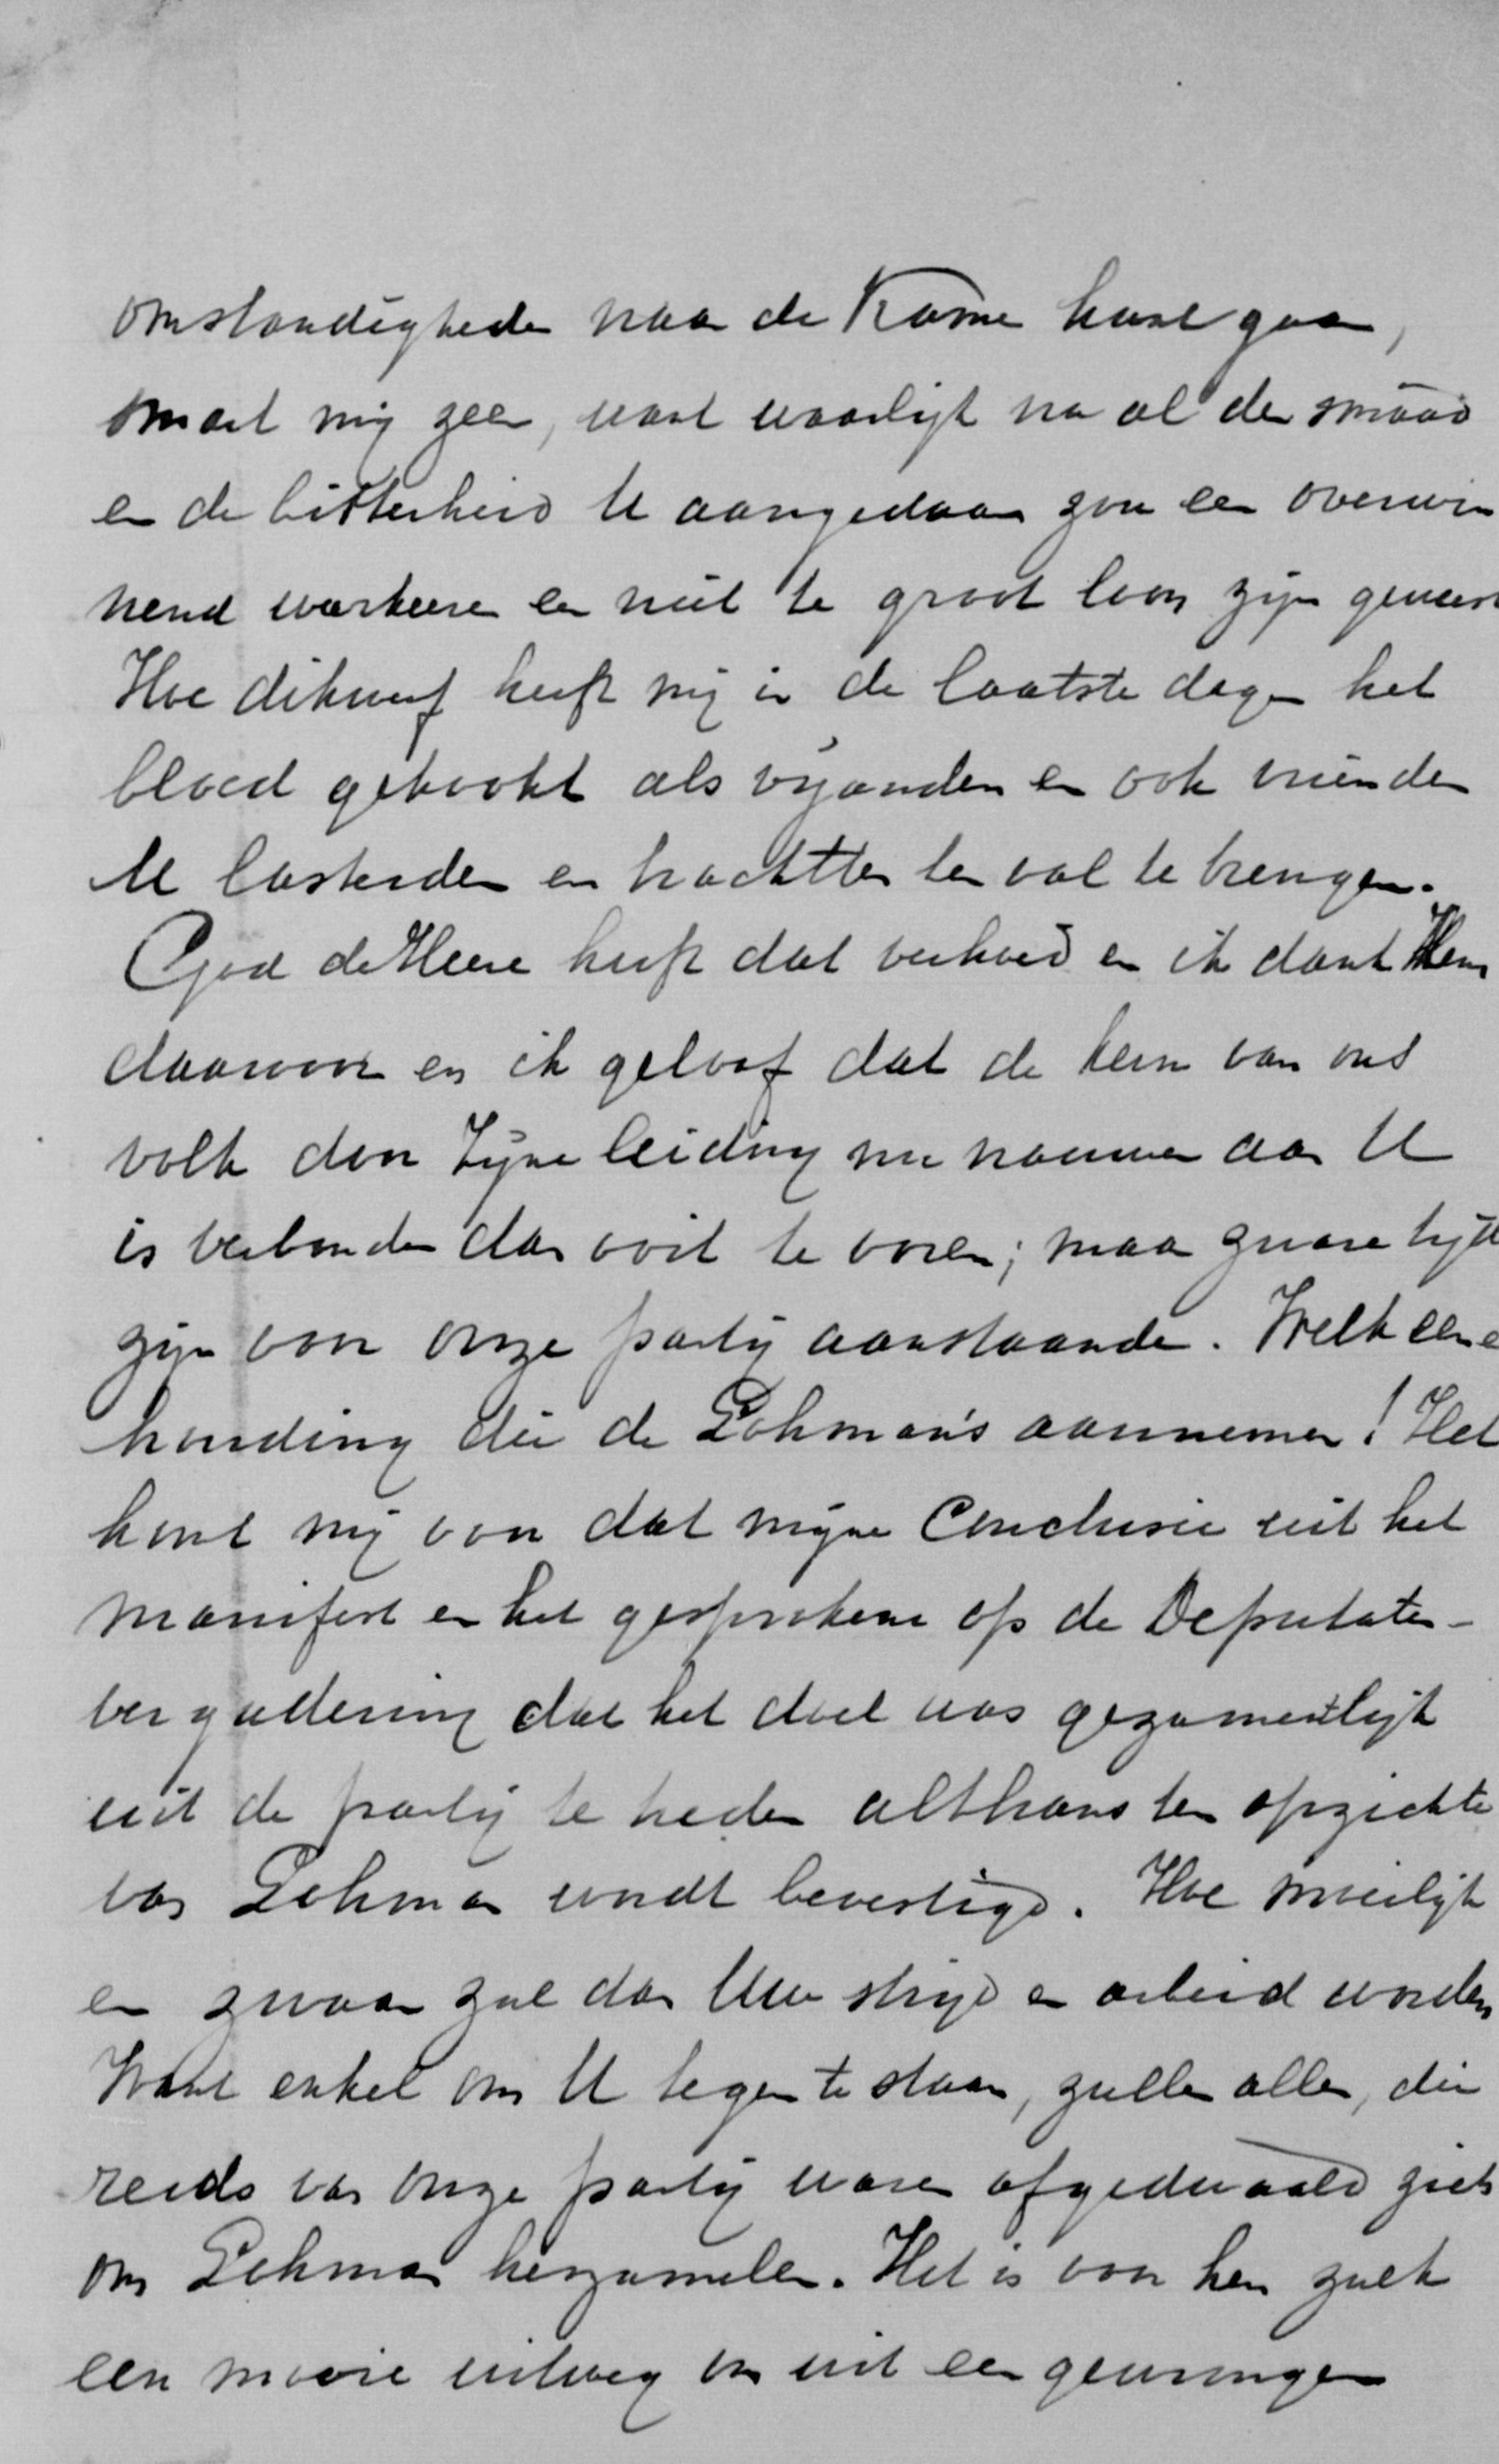 omstandigheden naar de Kamer kunt gaan,
smart mij zeer, want waarlijk na al den smaad
en de bitterheid U aangedaan zou een overwin
nend wederkeeren niet te groot loon zijn geweest
Hoe dikwerf heeft mij in de laatste dagen het
bloed gekookt als vijanden en ook vrienden
U lasterden en trachtten ten val te brengen.
God de Heere heeft dat verhoed en ik dank Hem
daarvoor en ik geloof dat de kern van ons
volk door Zijne leiding nu nauwer aan U
is verbonden dan ooit te voren; maar zware tijd
zijn voor onze partij aanstaande. Welk eene
houding die de Lohman's aannemen! Het
komt mij voor dat mijne Conclusie uit het
manifest en het gesprokene op de Deputaten-
vergadering dat het doel was gezamentlijk
uit de partij te treden althans ten opzichte
van Lohman wordt bevestigd. Hoe moeilijk
en zwaar zal dan Uw strijd en arbeid worden
Want enkel om U tegen te staan, zullen allen, die
reeds van onze partij waren afgedwaald zich
om Lohman verzamelen. Het is voor hen zulk
een mooie uitweg om uit een gewrongen